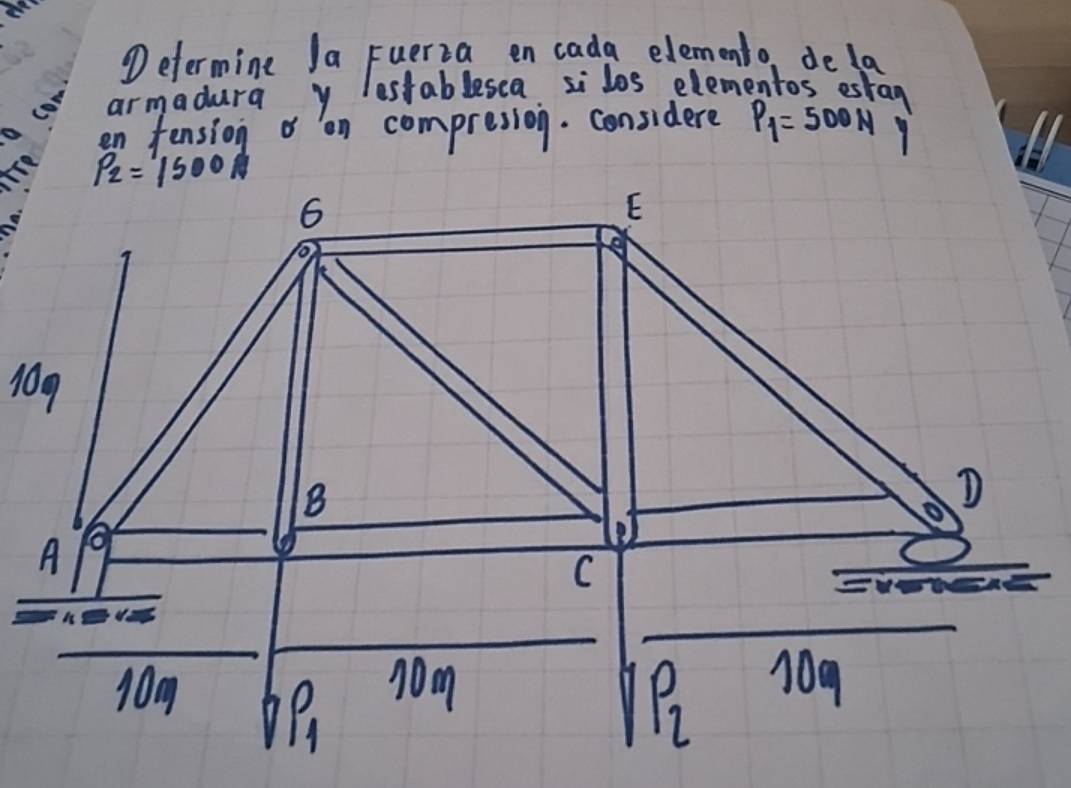 Determine la Fuerza en cada elemento de la
armadura y establesca si los elementos estan
en tension o en compresion. considere P1=500N y
P2=1500N
G
E
10m
B
D
A
C
10m
P1
10m
P2
10m